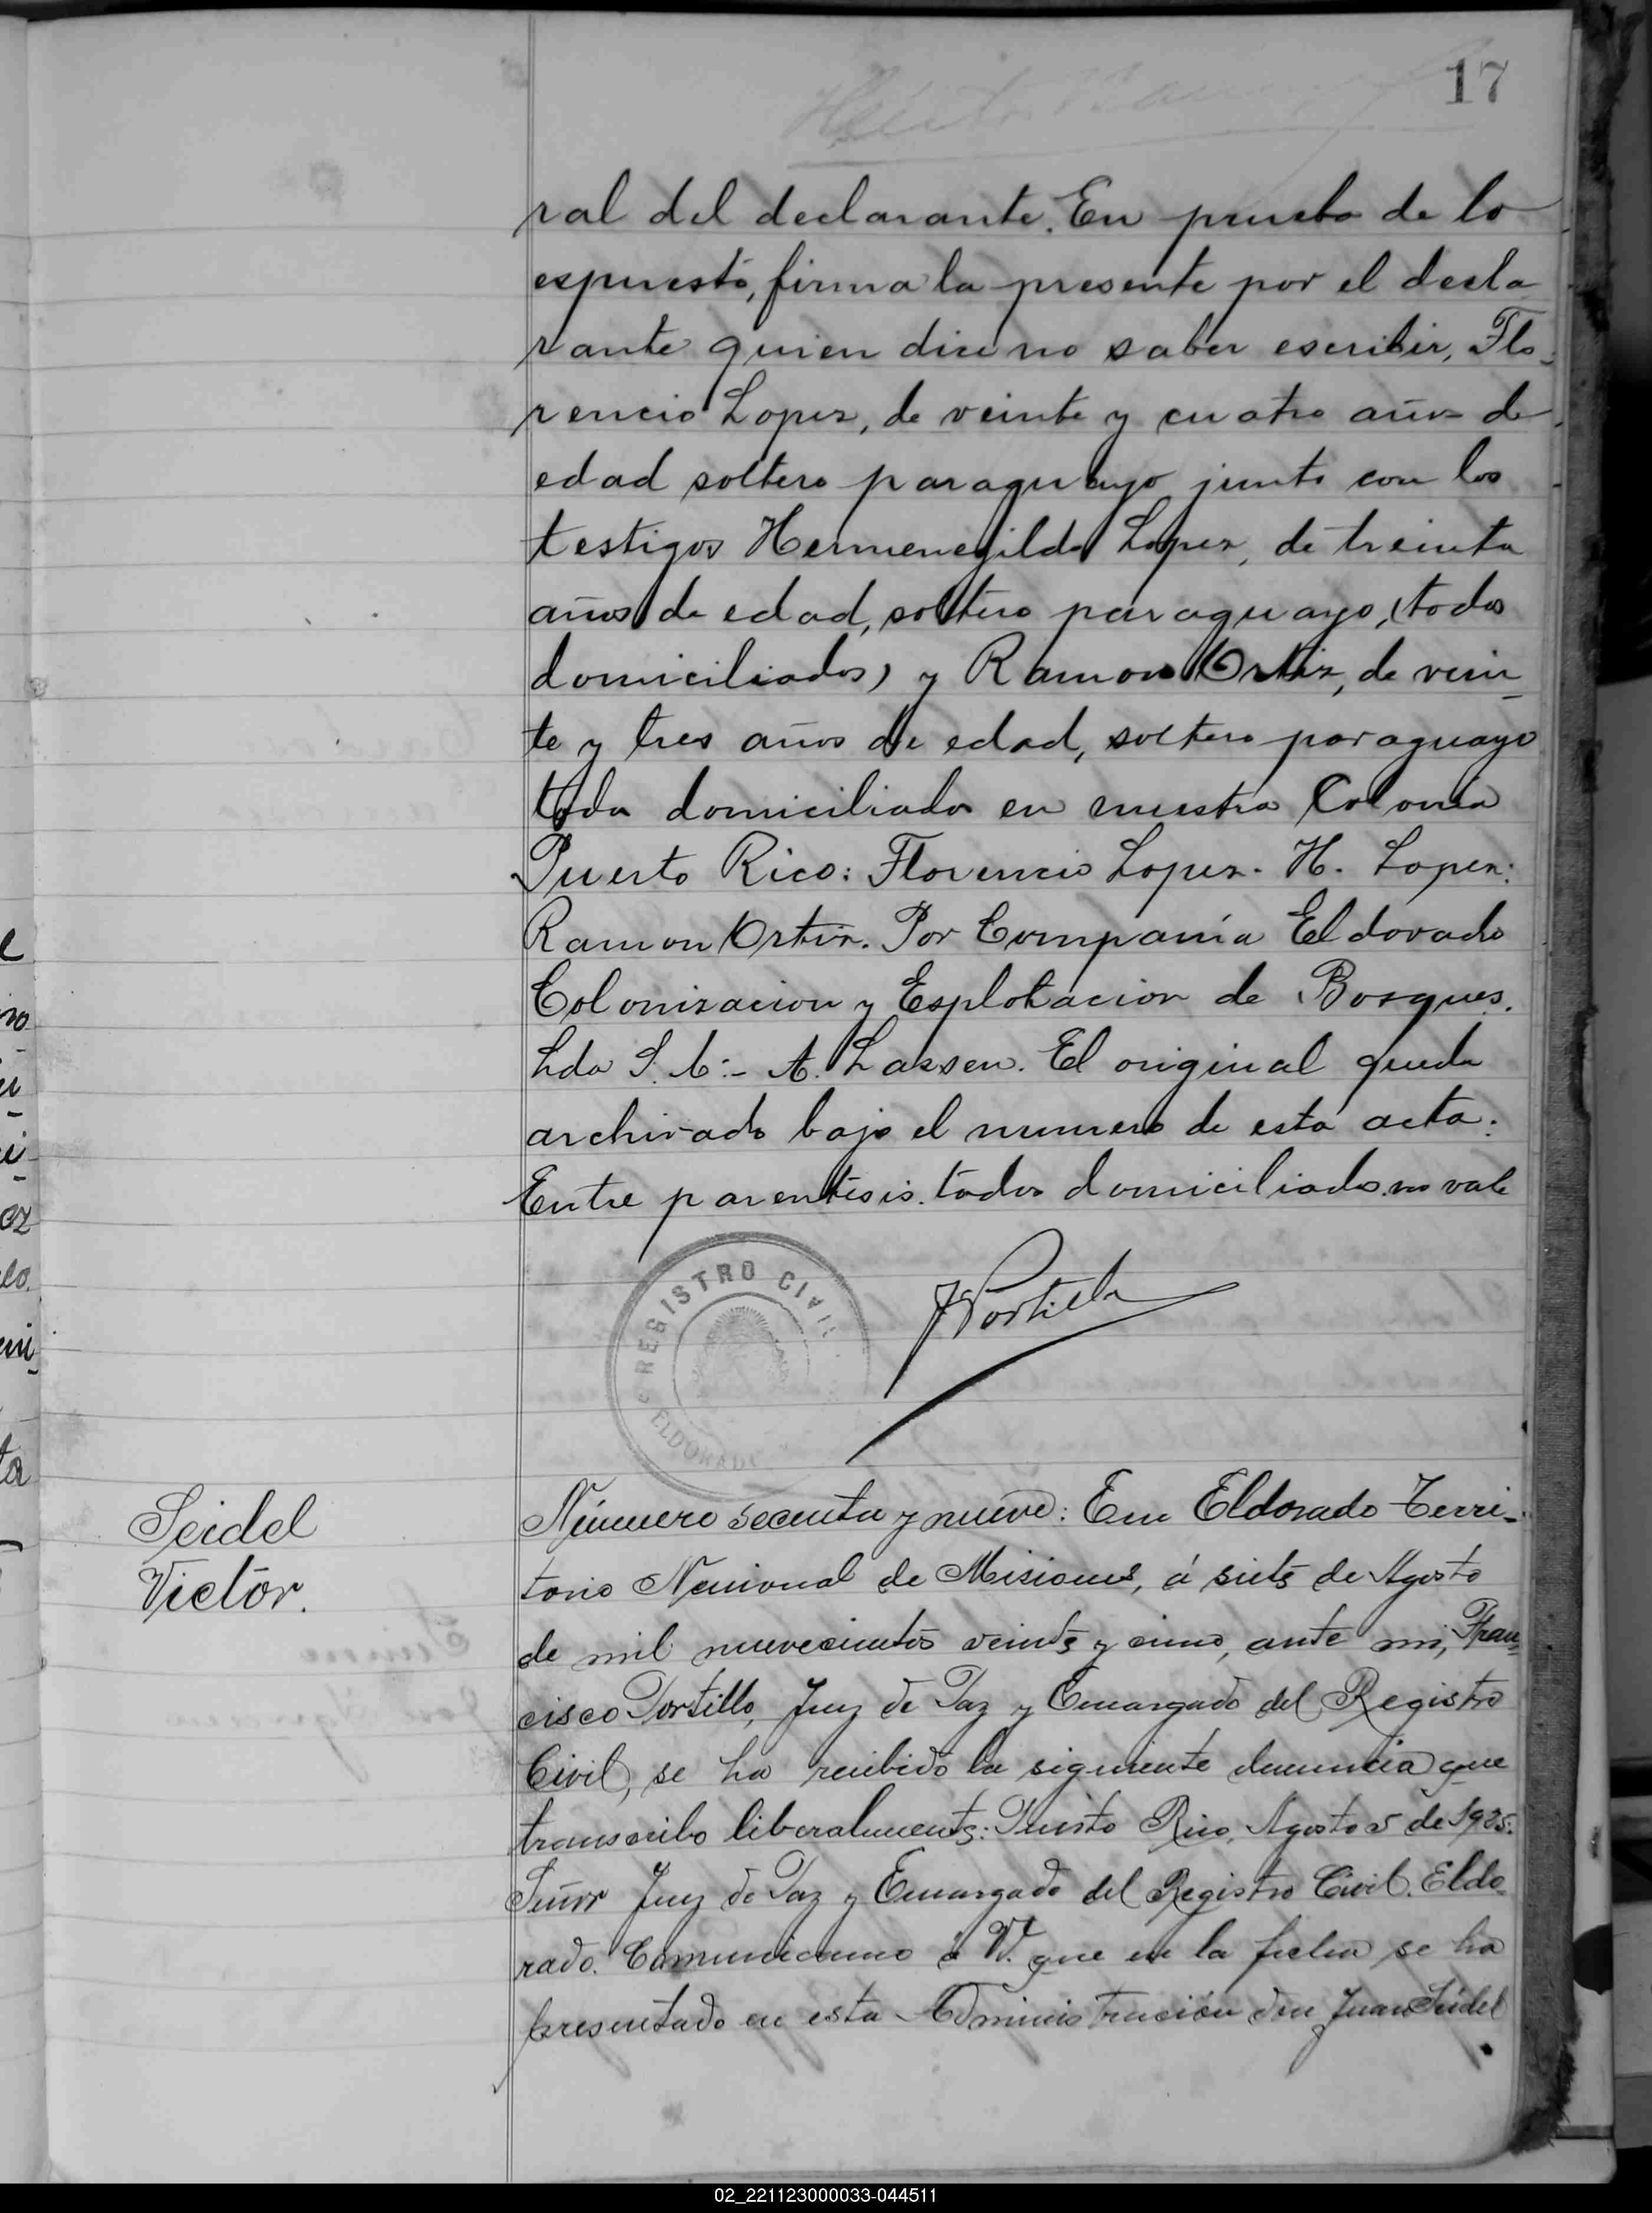 17
ral del declarante. En prueba de lo
espuesto, firma la presente por el decla
rante quien dice no saber escribir, Flo-
rencio Lopez, de veinte y cuatro años de
edad soltero paraguayo junto con los
testigos Hermenegildo Lopez, de treinta
años de edad, soltero paraguayo, (todos
domiciliados) y Ramon Ortiz, de vein
te y tres años de edad, soltero paraguayo
todos domiciliados en nuestra Colonia
Puerto Rico: Florencio Lopez. H. Lopez:
Ramon Ortiz. Por Compania Eldorado
Colonizacion y Esplotacion de Bosques.
Lda S. A:- A. Lassen. El original queda
archivado bajo el numero de esta acta:
Entre parentesis. todos domiciliados. no vale
REGISTRO CIVIL
ELDORADO
Portillo
Seidel
Victor.
Número secenta y nueve: En Eldorado Terri-
torio Nacional de Misiones, á siete de Agosto
de mil nuevecientos veinte y cinco, ante mi, Fran
cisco Portillo, Juez de Paz y Encargado del Registro
Civil, se ha recibido la siguiente denuncia que
transcribo liberalmente: Puerto Rico, Agosto 5 de 1925.
Señor Juez de Paz y Encargado del Registro Civil. Eldo
rado. Comunicamos á Vd. que en la fecha se ha
presentado en esta Administración don Juan Seidel
02_221123000033-044511